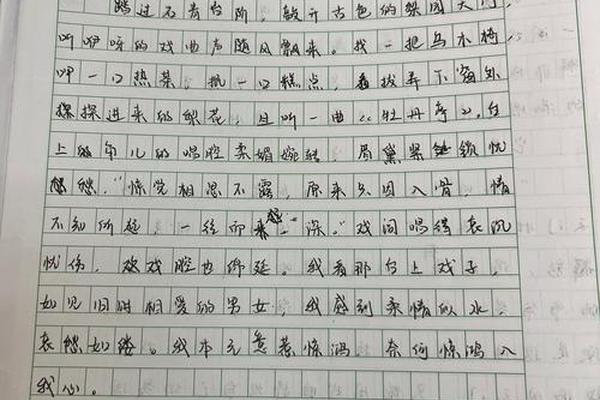 踏过石青台阶，敲开古色的梨园大门，
听咿呀的戏曲声随风飘来。找一把乌木椅，
呷一口热茶，抿一口糕点，看拨弄下窗外
探探进来的梨花，且听一曲《牡丹亭》。台
上的伶儿的唱腔柔媚婉转，眉黛紧锁忧
愁愁，“惊觉相思不露，原来只因入骨，情
不知所起，一往而深。”戏词唱得哀沉
忧伤，戏腔也绵延。我看那台上戏子，
如见旧时相爱的男女，我感到柔情似水，
哀愁如缕。我本无意惹惊鸿，奈何惊鸿入
我心。